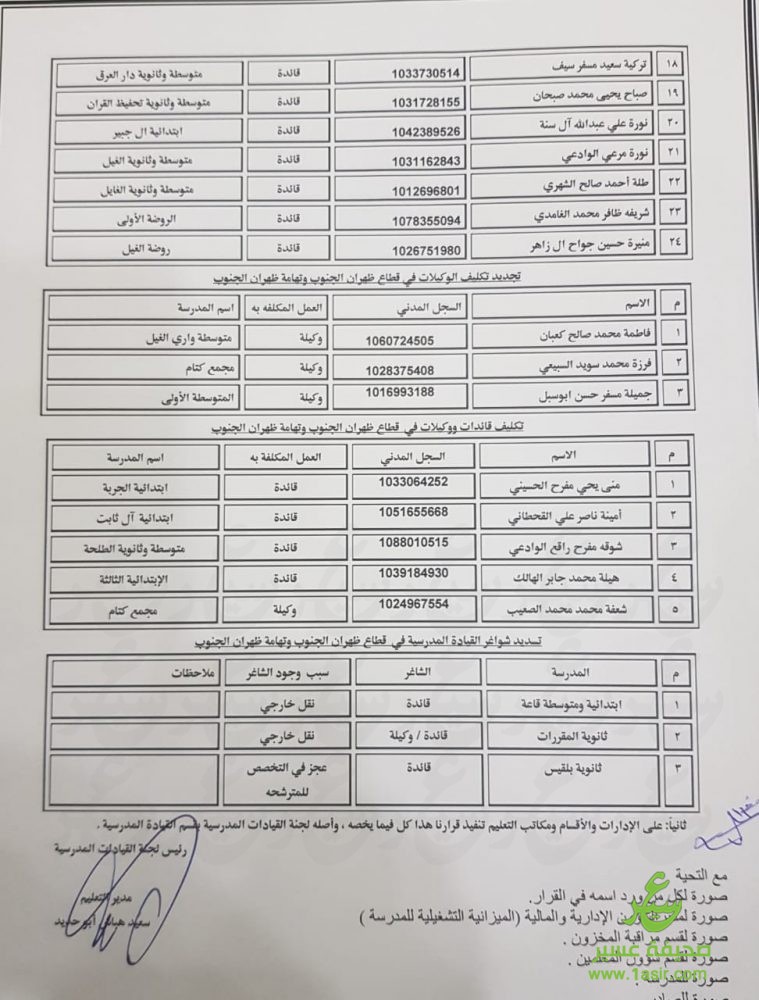 ١٨ تركية سعيد مسفر سيف 1033730514 قائدة متوسطة وثانوية دار العرق
١٩ صباح يحيى محمد صبحان 1031728155 قائدة متوسطة وثانوية تحفيظ القران
٢٠ نورة علي عبدالله آل سنة 1042389526 قائدة ابتدائية ال جبير
٢١ نورة مرعي الوادعي 1031162843 قائدة متوسطة وثانوية الغيل
٢٢ طلة أحمد صالح الشهري 1012696801 قائدة متوسطة وثانوية الغايل
٢٣ شريفه ظافر محمد الغامدي 1078355094 قائدة الروضة الأولى
٢٤ منيرة حسين جواح ال زاهر 1026751980 قائدة روضة الغيل
تجديد تكليف الوكيلات في قطاع ظهران الجنوب وتهامة ظهران الجنوب
م الاسم السجل المدني العمل المكلفه به اسم المدرسة
١ فاطمة محمد صالح كعبان 1060724505 وكيلة متوسطة واري الغيل
٢ فرزة محمد سويد السبيعي 1028375408 وكيلة مجمع كتام
٣ جميلة مسفر حسن ابوسبل 1016993188 وكيلة المتوسطة الأولى
تكليف قائدات ووكيلات في قطاع ظهران الجنوب وتهامة ظهران الجنوب
م الاسم السجل المدني العمل المكلفة به اسم المدرسة
١ منى يحي مفرح الحسيني 1033064252 قائدة ابتدائية الجربة
٢ أمينة ناصر علي القحطاني 1051655668 قائدة ابتدائية آل ثابت
٣ شوقه مفرح رافع الوادعي 1088010515 قائدة متوسطة وثانوية الطلحة
٤ هيلة محمد جابر الهالك 1039184930 قائدة الإبتدائية الثالثة
٥ شعفة محمد محمد الصعيب 1024967554 وكيلة مجمع كتام
تسديد شواغر القيادة المدرسية في قطاع ظهران الجنوب وتهامة ظهران الجنوب
م المدرسة الشاغر سبب وجود الشاغر ملاحظات
١ ابتدائية ومتوسطة قاعة قائدة نقل خارجي
٢ ثانوية المقررات قائدة / وكيلة نقل خارجي
٣ ثانوية بلقيس قائدة عجز في التخصص
للمترشحه
ثانياً: على الإدارات والأقسام ومكاتب التعليم تنفيذ قرارنا هذا كل فيما يخصه ، وأصله لجنة القيادات المدرسية بقسم القيادة المدرسية .
رئيس لجنة القيادات المدرسية
مدير التعليم
مع التحية
صورة لكل من ورد اسمه في القرار.
صورة الإدارية والمالية (الميزانية التشغيلية للمدرسة )
صورة لقسم مراقبة المخزون .
صورة لقسم شؤون المعلمين .
صورة للمدرسة .
صحيفة عسير
www.1asir.com